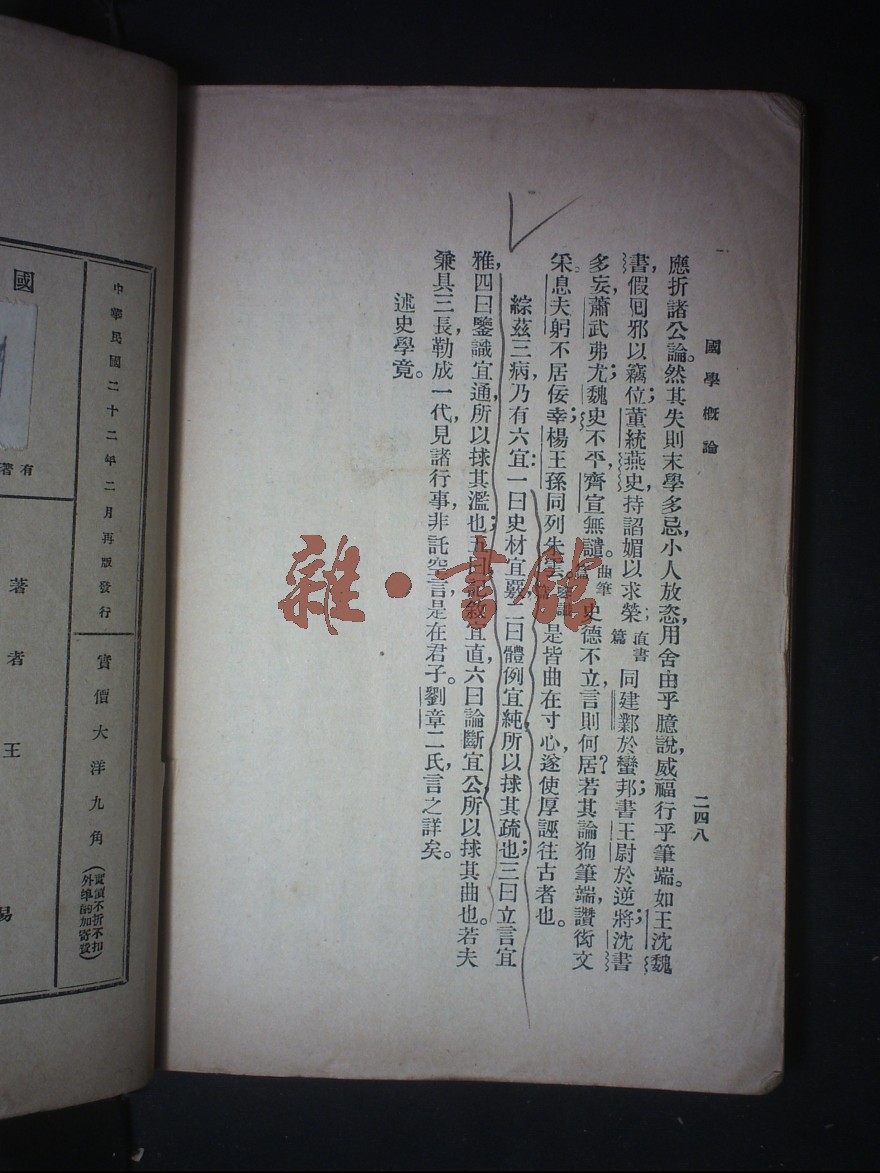 國學概論
二四八
應折諸公論。然其失則末學多忌,小人放恣,用舍由乎臆說,威福行乎筆端。如王沈魏
書,假回邪以竊位;董統燕史,持諂媚以求榮;直書篇同建鄴於蠻邦,書王尉於逆將;沈書
多妄,蕭武弗尤;魏史不平,齊宣無譴。曲筆史德不立,言則何居?若其論狥筆端,讚衒文
采。息夫躬不居佞幸;楊王孫同列朱雲。是皆曲在寸心,遂使厚誣往古者也。
綜茲三病,乃有六宜:一曰史材宜覈,二曰體例宜純,所以捄其疏也;三曰立言宜
雅,四曰鑒識宜通,所以捄其濫也;五曰記敘宜直,六曰論斷宜公,所以捄其曲也。若夫
兼具三長,勒成一代,見諸行事,非託空言,是在君子。劉章二氏,言之詳矣。
述史學竟。
雜·書館
中華民國二十二年二月再版發行
實價大洋九角
(實價不折不扣
外埠酌加寄費)
國
有著
著者王
易